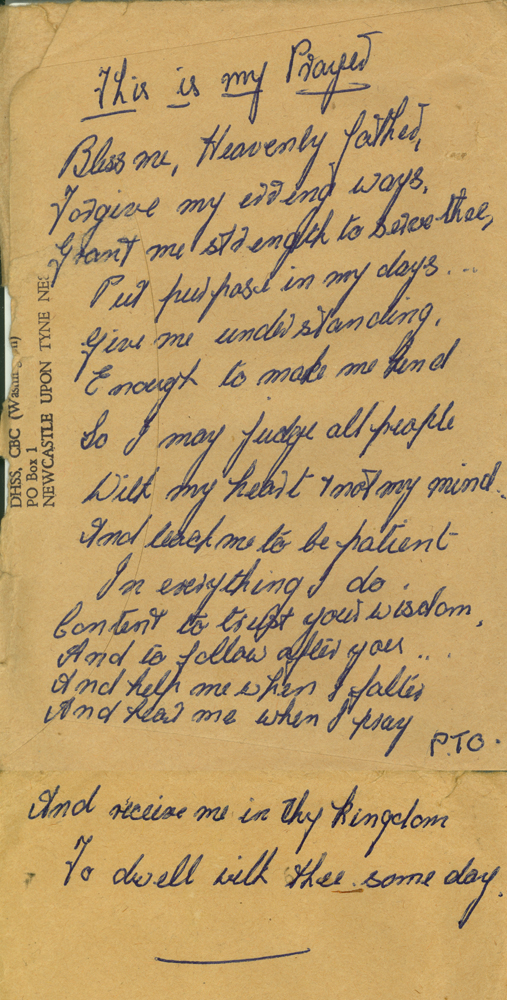 This is my Prayer
Bless me, Heavenly father,
Forgive my erring ways,
Grant me strength to serve thee,
Put purpose in my days...
Give me understanding,
Enough to make me kind
So I may judge all people
With my heart & not my mind..
And teach me to be patient
In everything I do.
Content to trust your wisdom,
And to follow after you...
And help me when I falter
And hear me when I pray
P.T.O.
And receive me in thy kingdom
To dwell with thee some day.
DHSS, CBC
PO Box 1
NEWCASTLE UPON TYNE